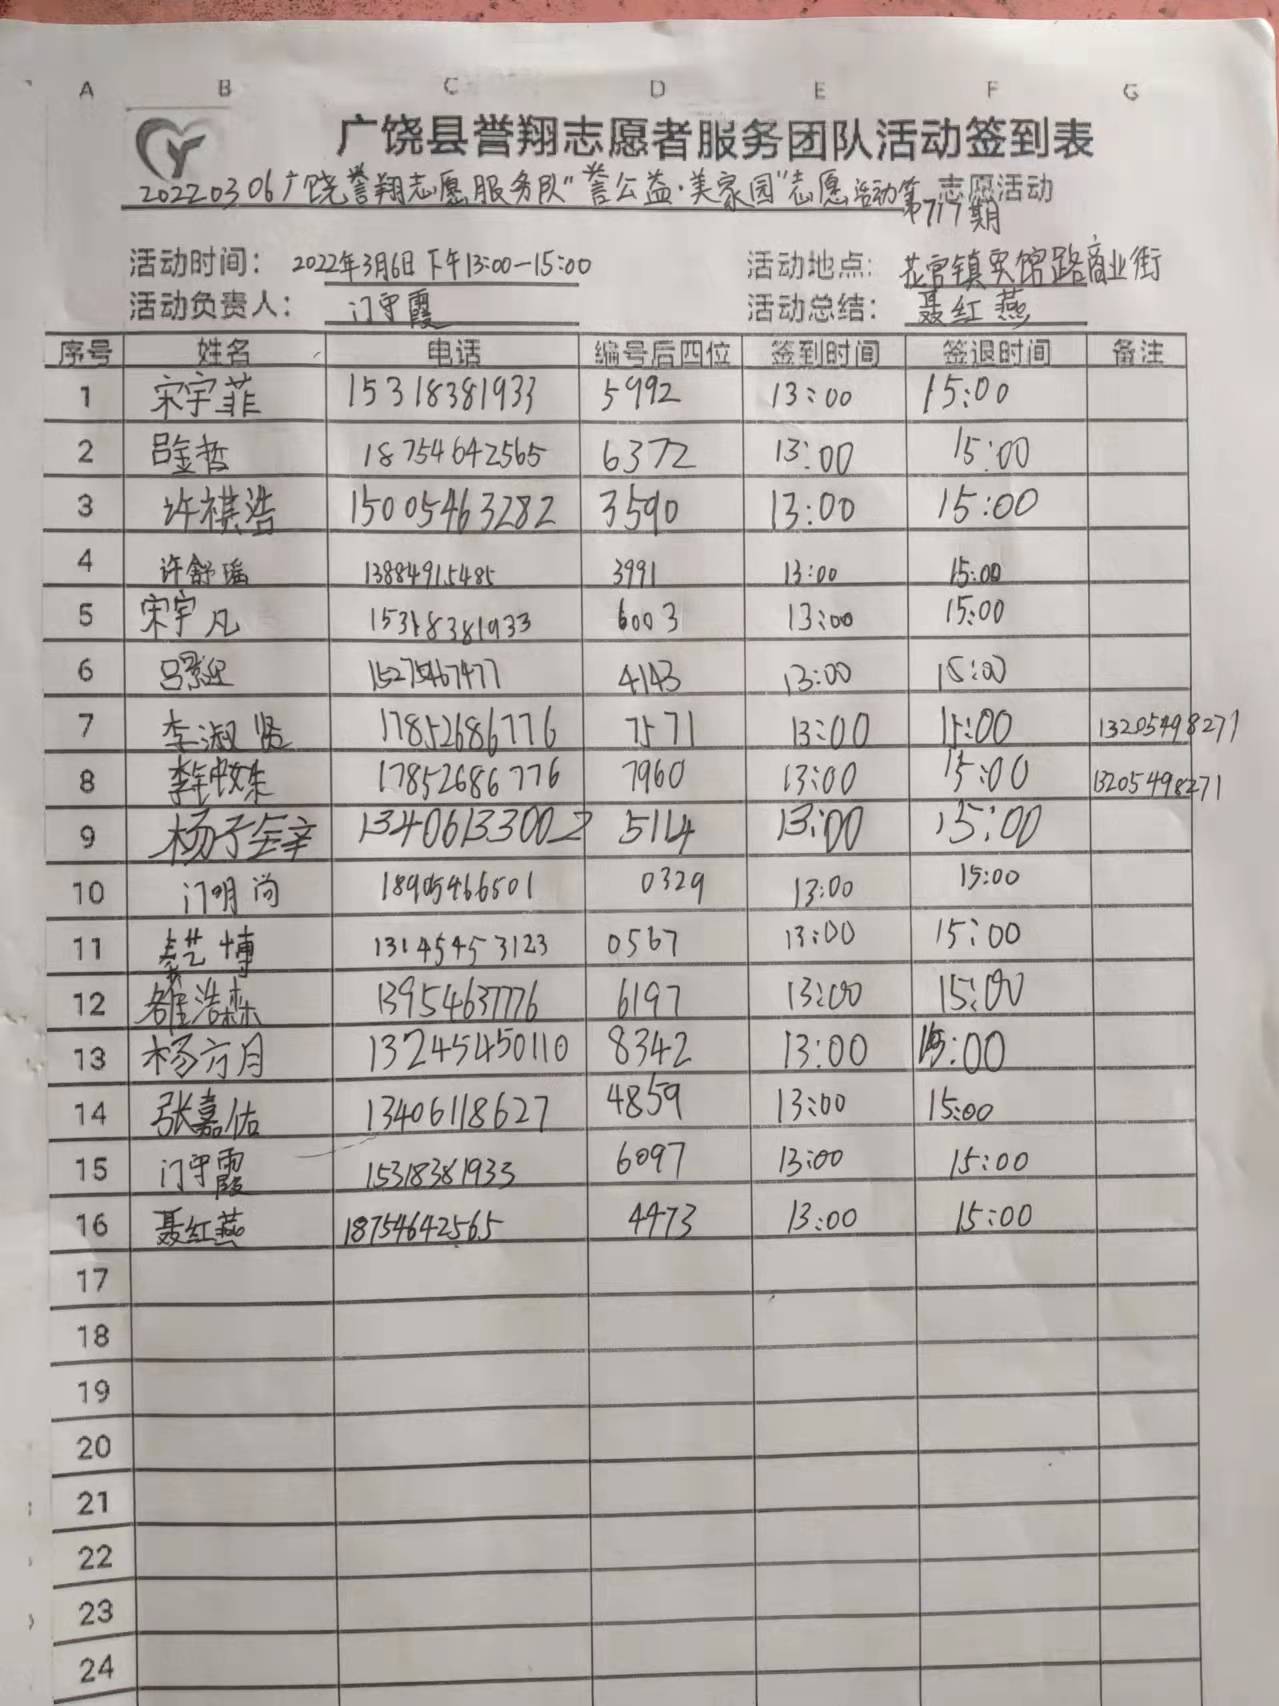 A B C D E F G
广饶县誉翔志愿者服务团队活动签到表
20220306广饶誉翔志愿服务队"誉公益·美家园"志愿活动第717期 志愿活动
活动时间: 2022年3月6日下午13:00-15:00 活动地点: 花官镇宾馆路商业街
活动负责人: 门守霞 活动总结: 聂红燕
序号 姓名 电话 编号后四位 签到时间 签退时间 备注
1 宋宇菲 15318381933 5992 13:00 15:00
2 吕金哲 18754642565 6372 13:00 15:00
3 许祺浩 15005463282 3590 13:00 15:00
4 许舒瑶 13884915485 3991 13:00 15:00
5 宋宇凡 15318381933 6003 13:00 15:00
6 吕 15275467477 4143 13:00 15:00
7 李淑贤 17852686776 7571 13:00 15:00 13205498271
8 李 17852686776 7960 13:00 15:00 13205498271
9 杨子 13406133002 5114 13:00 15:00
10 门明尚 18905466501 0329 13:00 15:00
11 艺博 13145453123 0567 13:00 15:00
12 浩 13954637776 6197 13:00 15:00
13 杨方月 13245450110 8342 13:00 15:00
14 张嘉佑 13406118627 4859 13:00 15:00
15 门守霞 15318381933 6097 13:00 15:00
16 聂红燕 18754642565 4473 13:00 15:00
17
18
19
20
21
22
23
24